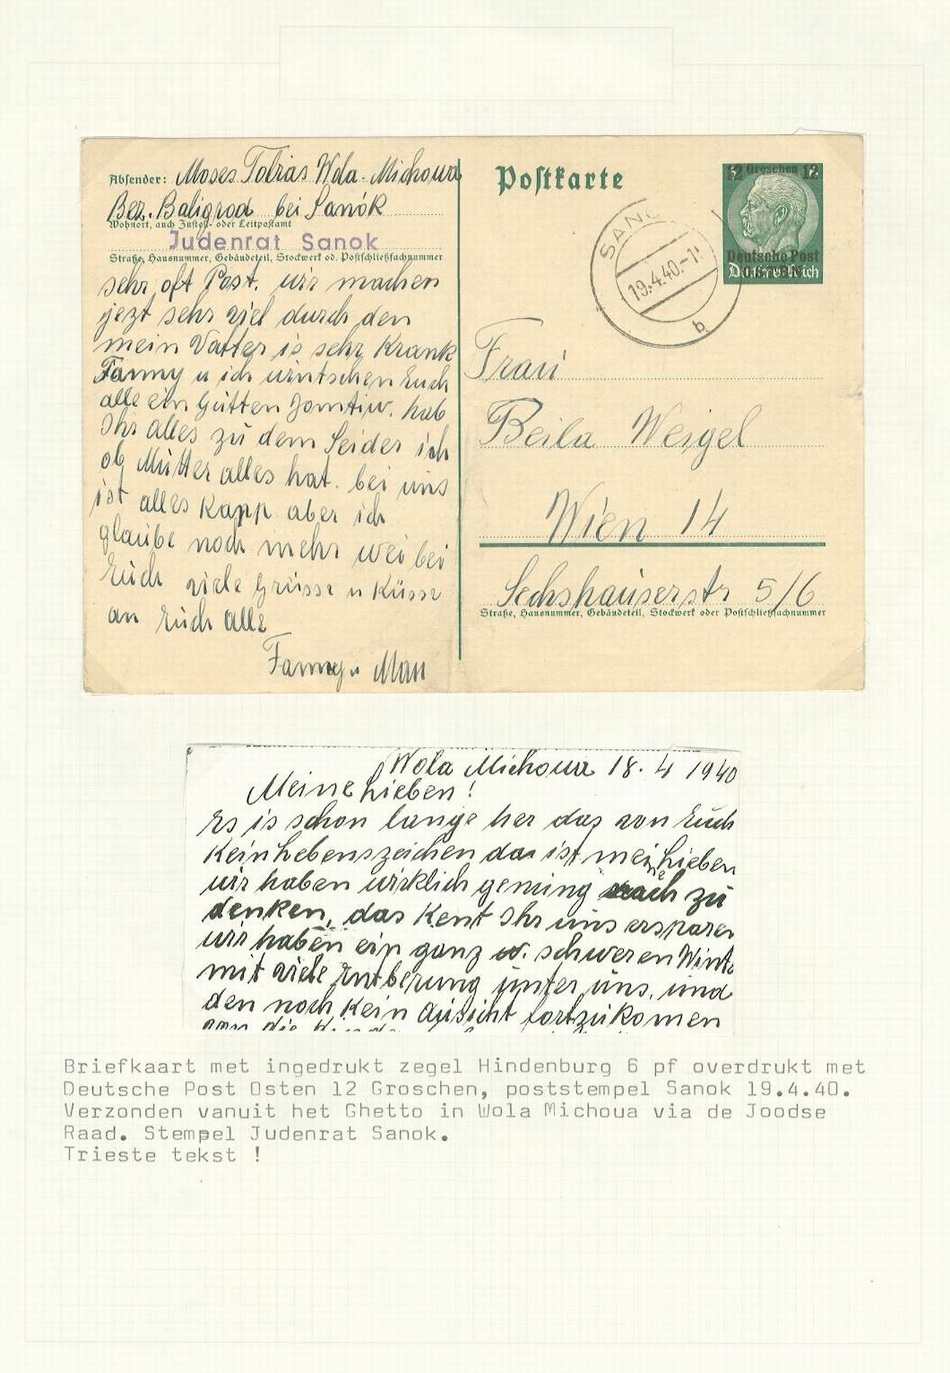 Absender: Moses Tobias Wola-Michowa
Bez. Baligrod bei Sanok
Wohnort, auch Zustell- oder Leitpostamt
Judenrat Sanok
Straße, Hausnummer, Gebäudeteil, Stockwerk od. Postschließfachnummer
sehr oft Post. wir machen
jezt sehr viel durch den
mein Vatter is sehr Krank
Fanny u ich wintschen Euch
alle ein gutten Jomtiw. hab
Ihr alles zu dem Seider ich
ob Mutter alles hat. bei uns
ist alles Kapp aber ich
glaube noch mehr wei bei
Euch viele Grüsse u Küsse
an Euch alle
Fanny u Man
Postkarte
12 Groschen 12
Deutsche Post
Deutsches Reich
SANOK
19.4.40.-1
b
Frau
Beila Weigel
Wien 14
Sechshauserstr 5/6
Straße, Hausnummer, Gebäudeteil, Stockwerk oder Postschließfachnummer
Wola Michowa 18. 4 1940
Meine Lieben!
Es is schon lange her das von Euch
Kein Lebenszeichen das ist meine Lieben
wir haben wirklich genung zu
denken, das Kent Ihr uns ersparen
wir haben ein ganz schweren Wint
mit viele Entberung unter uns. und
den noch Kein Aussicht fortzukomen
Briefkaart met ingedrukt zegel Hindenburg 6 pf overdrukt met
Deutsche Post Osten 12 Groschen, poststempel Sanok 19.4.40.
Verzonden vanuit het Ghetto in Wola Michoua via de Joodse
Raad. Stempel Judenrat Sanok.
Trieste tekst !